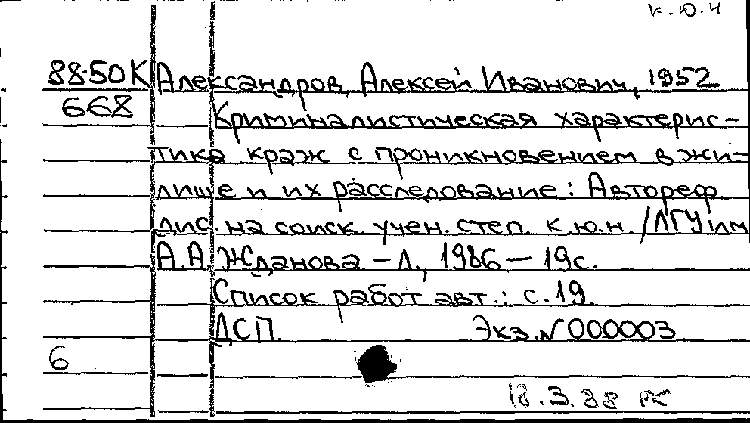 к.ю.н
88-50К Александров, Алексей Иванович, 1952
668 Криминалистическая характерис-
тика краж с проникновением в жи-
лище и их расследование: Автореф
дис. на соиск. учен. степ. к.ю.н. /ЛГУ им
А.А. Жданова – Л., 1986 – 19с.
Список работ авт.: с.19.
ДСП. Экз. № 000003
6
18.3.88